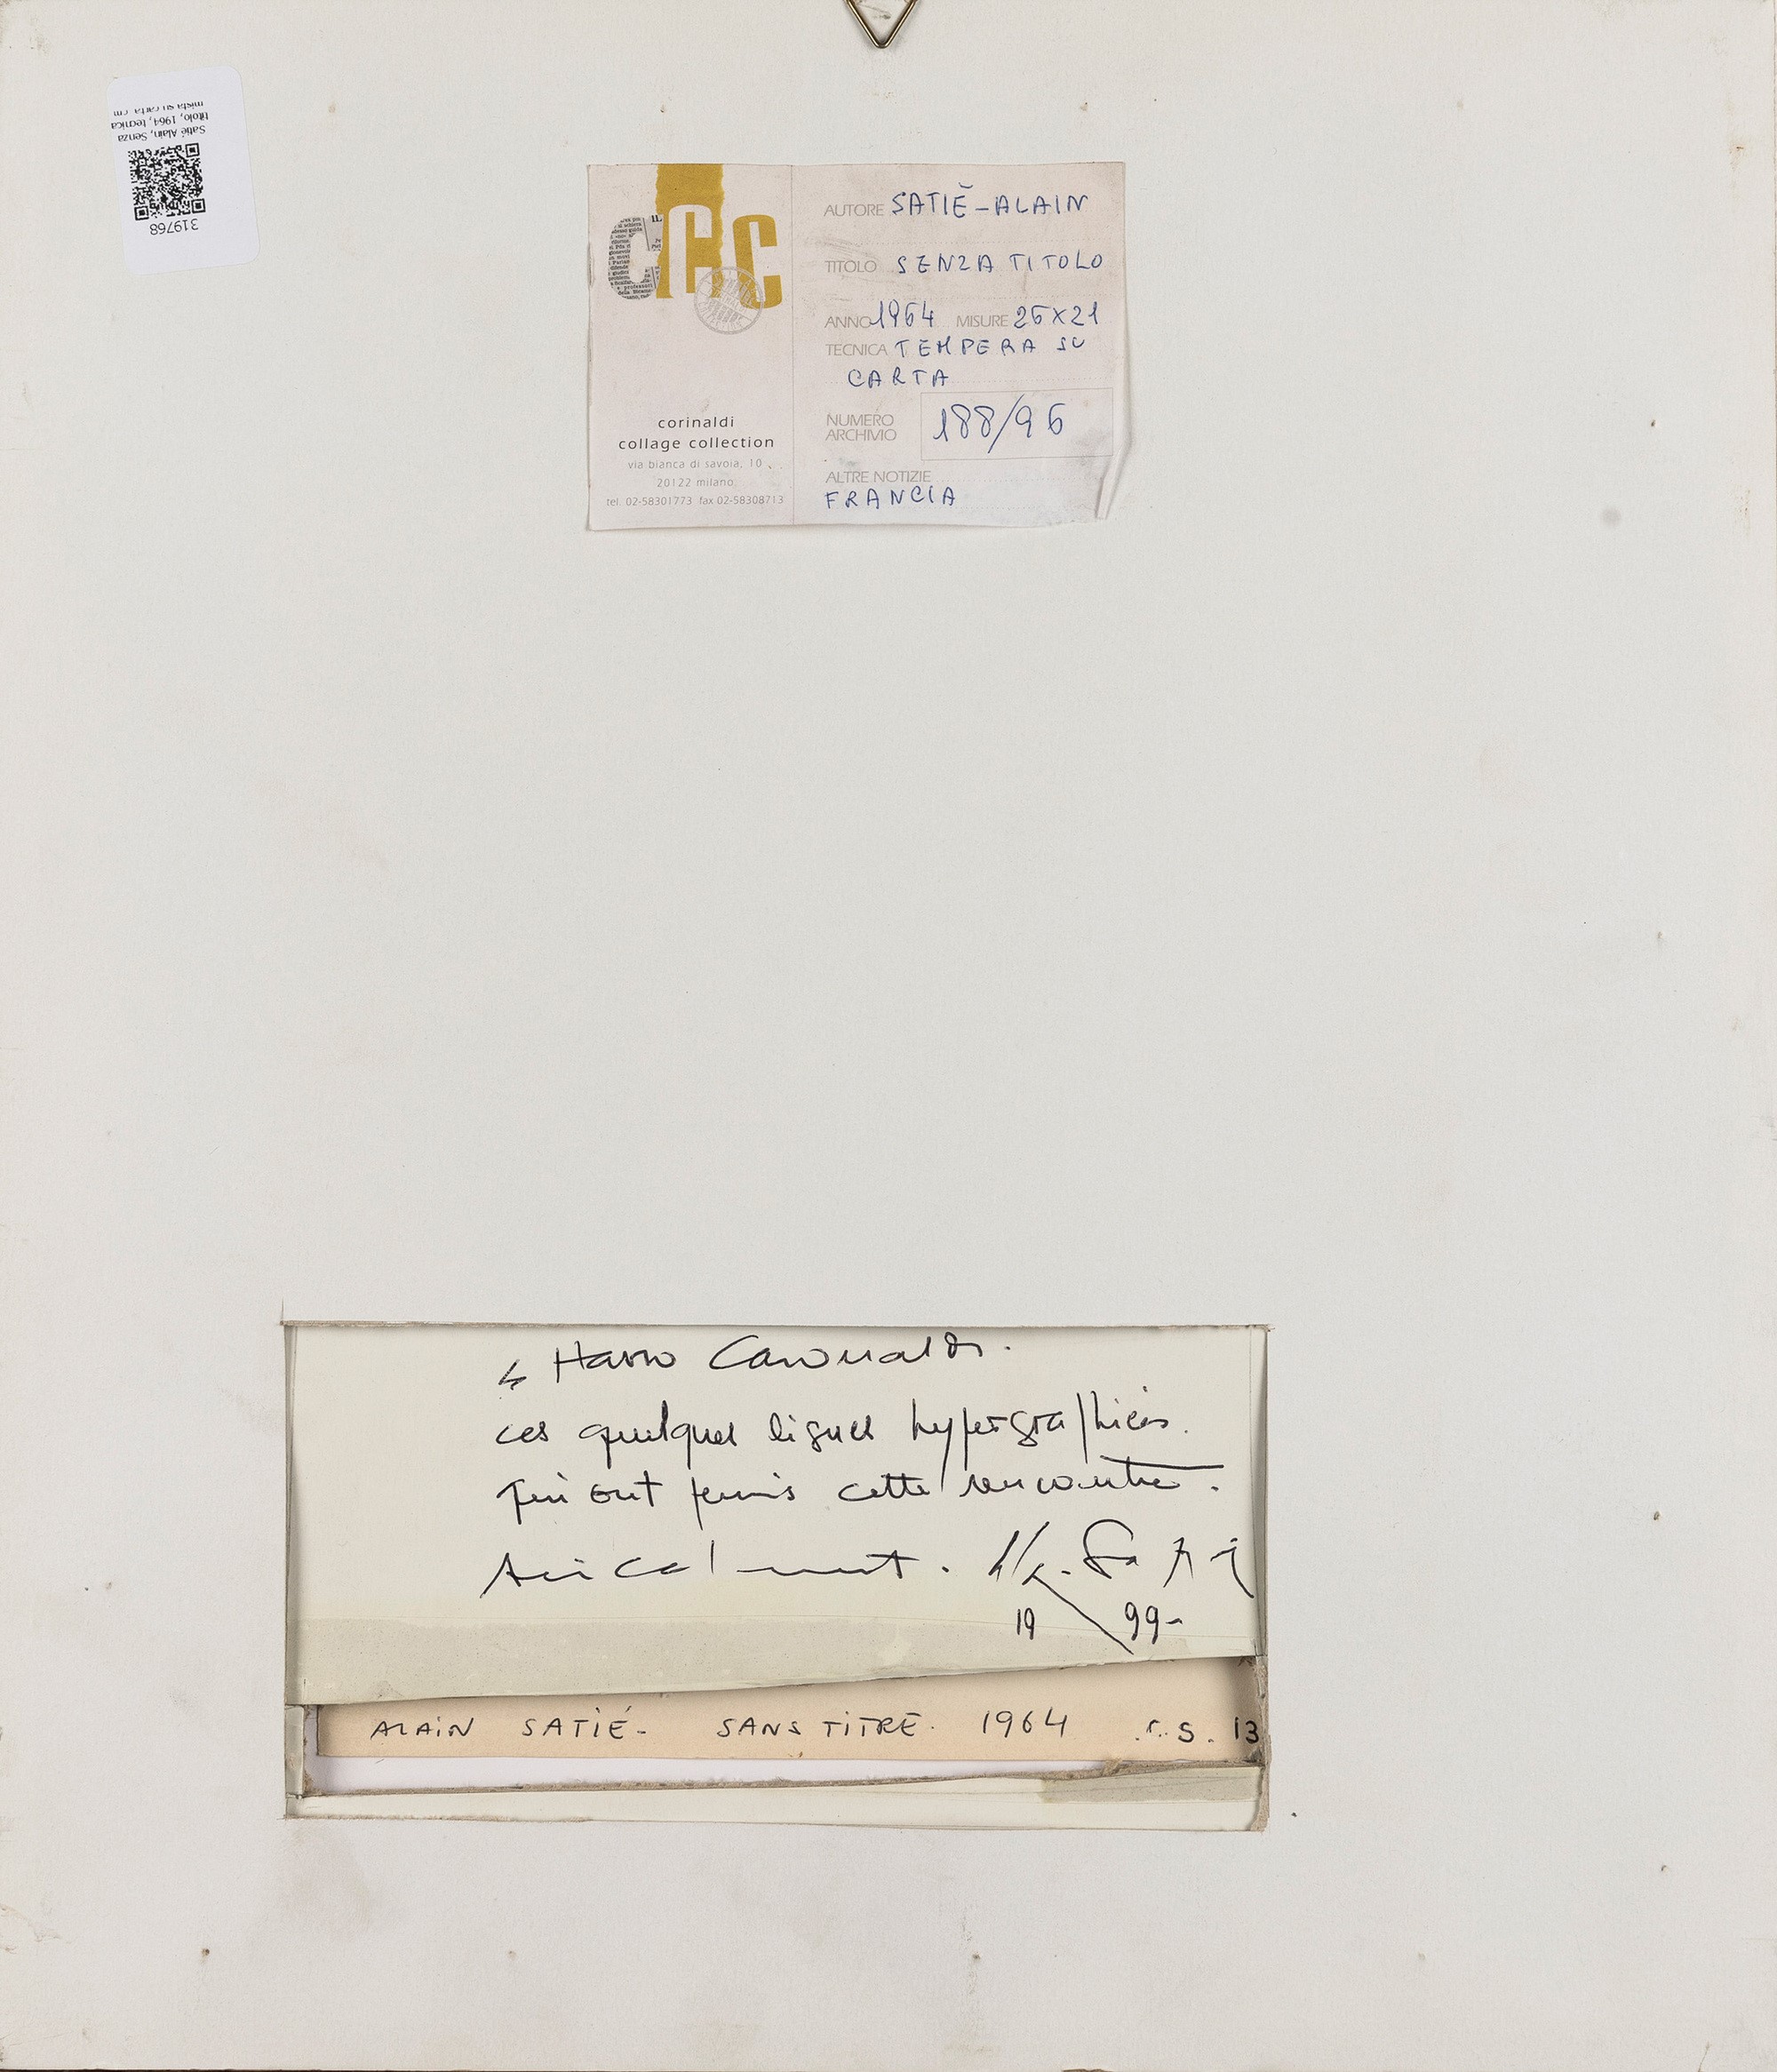 Satiè Alain, Senza
titolo, 1964, tecnica
mista su carta cm
319768
CCC
corinaldi
collage collection
via bianca di savoia, 10
20122 milano
tel. 02-58301773 fax 02-58308713
AUTORE SATIÉ-ALAIN
TITOLO SENZA TITOLO
ANNO 1964 MISURE 26X21
TECNICA TEMPERA SU
CARTA
NUMERO
ARCHIVIO 188/96
ALTRE NOTIZIE
FRANCIA
ces quelques lignes hypergraphiées.
qui ont permis cette rencontre.
Amicalement.
19 99-
ALAIN SATIÉ- SANS TITRE. 1964 S. 13